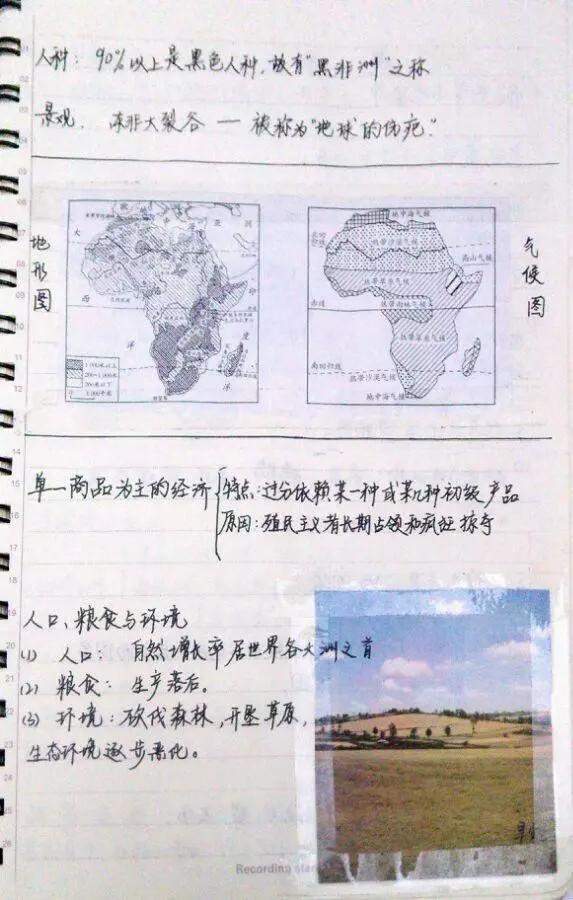 人种：90%以上是黑色人种，故有"黑非洲"之称
景观．东非大裂谷 — 被称为"地球的伤疤"
地形图
大
西
洋
印
度
洋
1000米以上
200~1000米
200米以下
气候图
地中海气候
北回归线
热带沙漠气候
高山气候
热带草原气候
赤道
热带雨林气候
热带草原气候
南回归线
热带沙漠气候
地中海气候
单一商品为主的经济
特点：过分依赖某一种或某几种初级产品
原因：殖民主义者长期占领和疯狂掠夺
人口、粮食与环境
(1) 人口：自然增长率居世界各大洲之首
(2) 粮食：生产落后。
(3) 环境：砍伐森林，开垦草原，
生态环境逐步恶化。